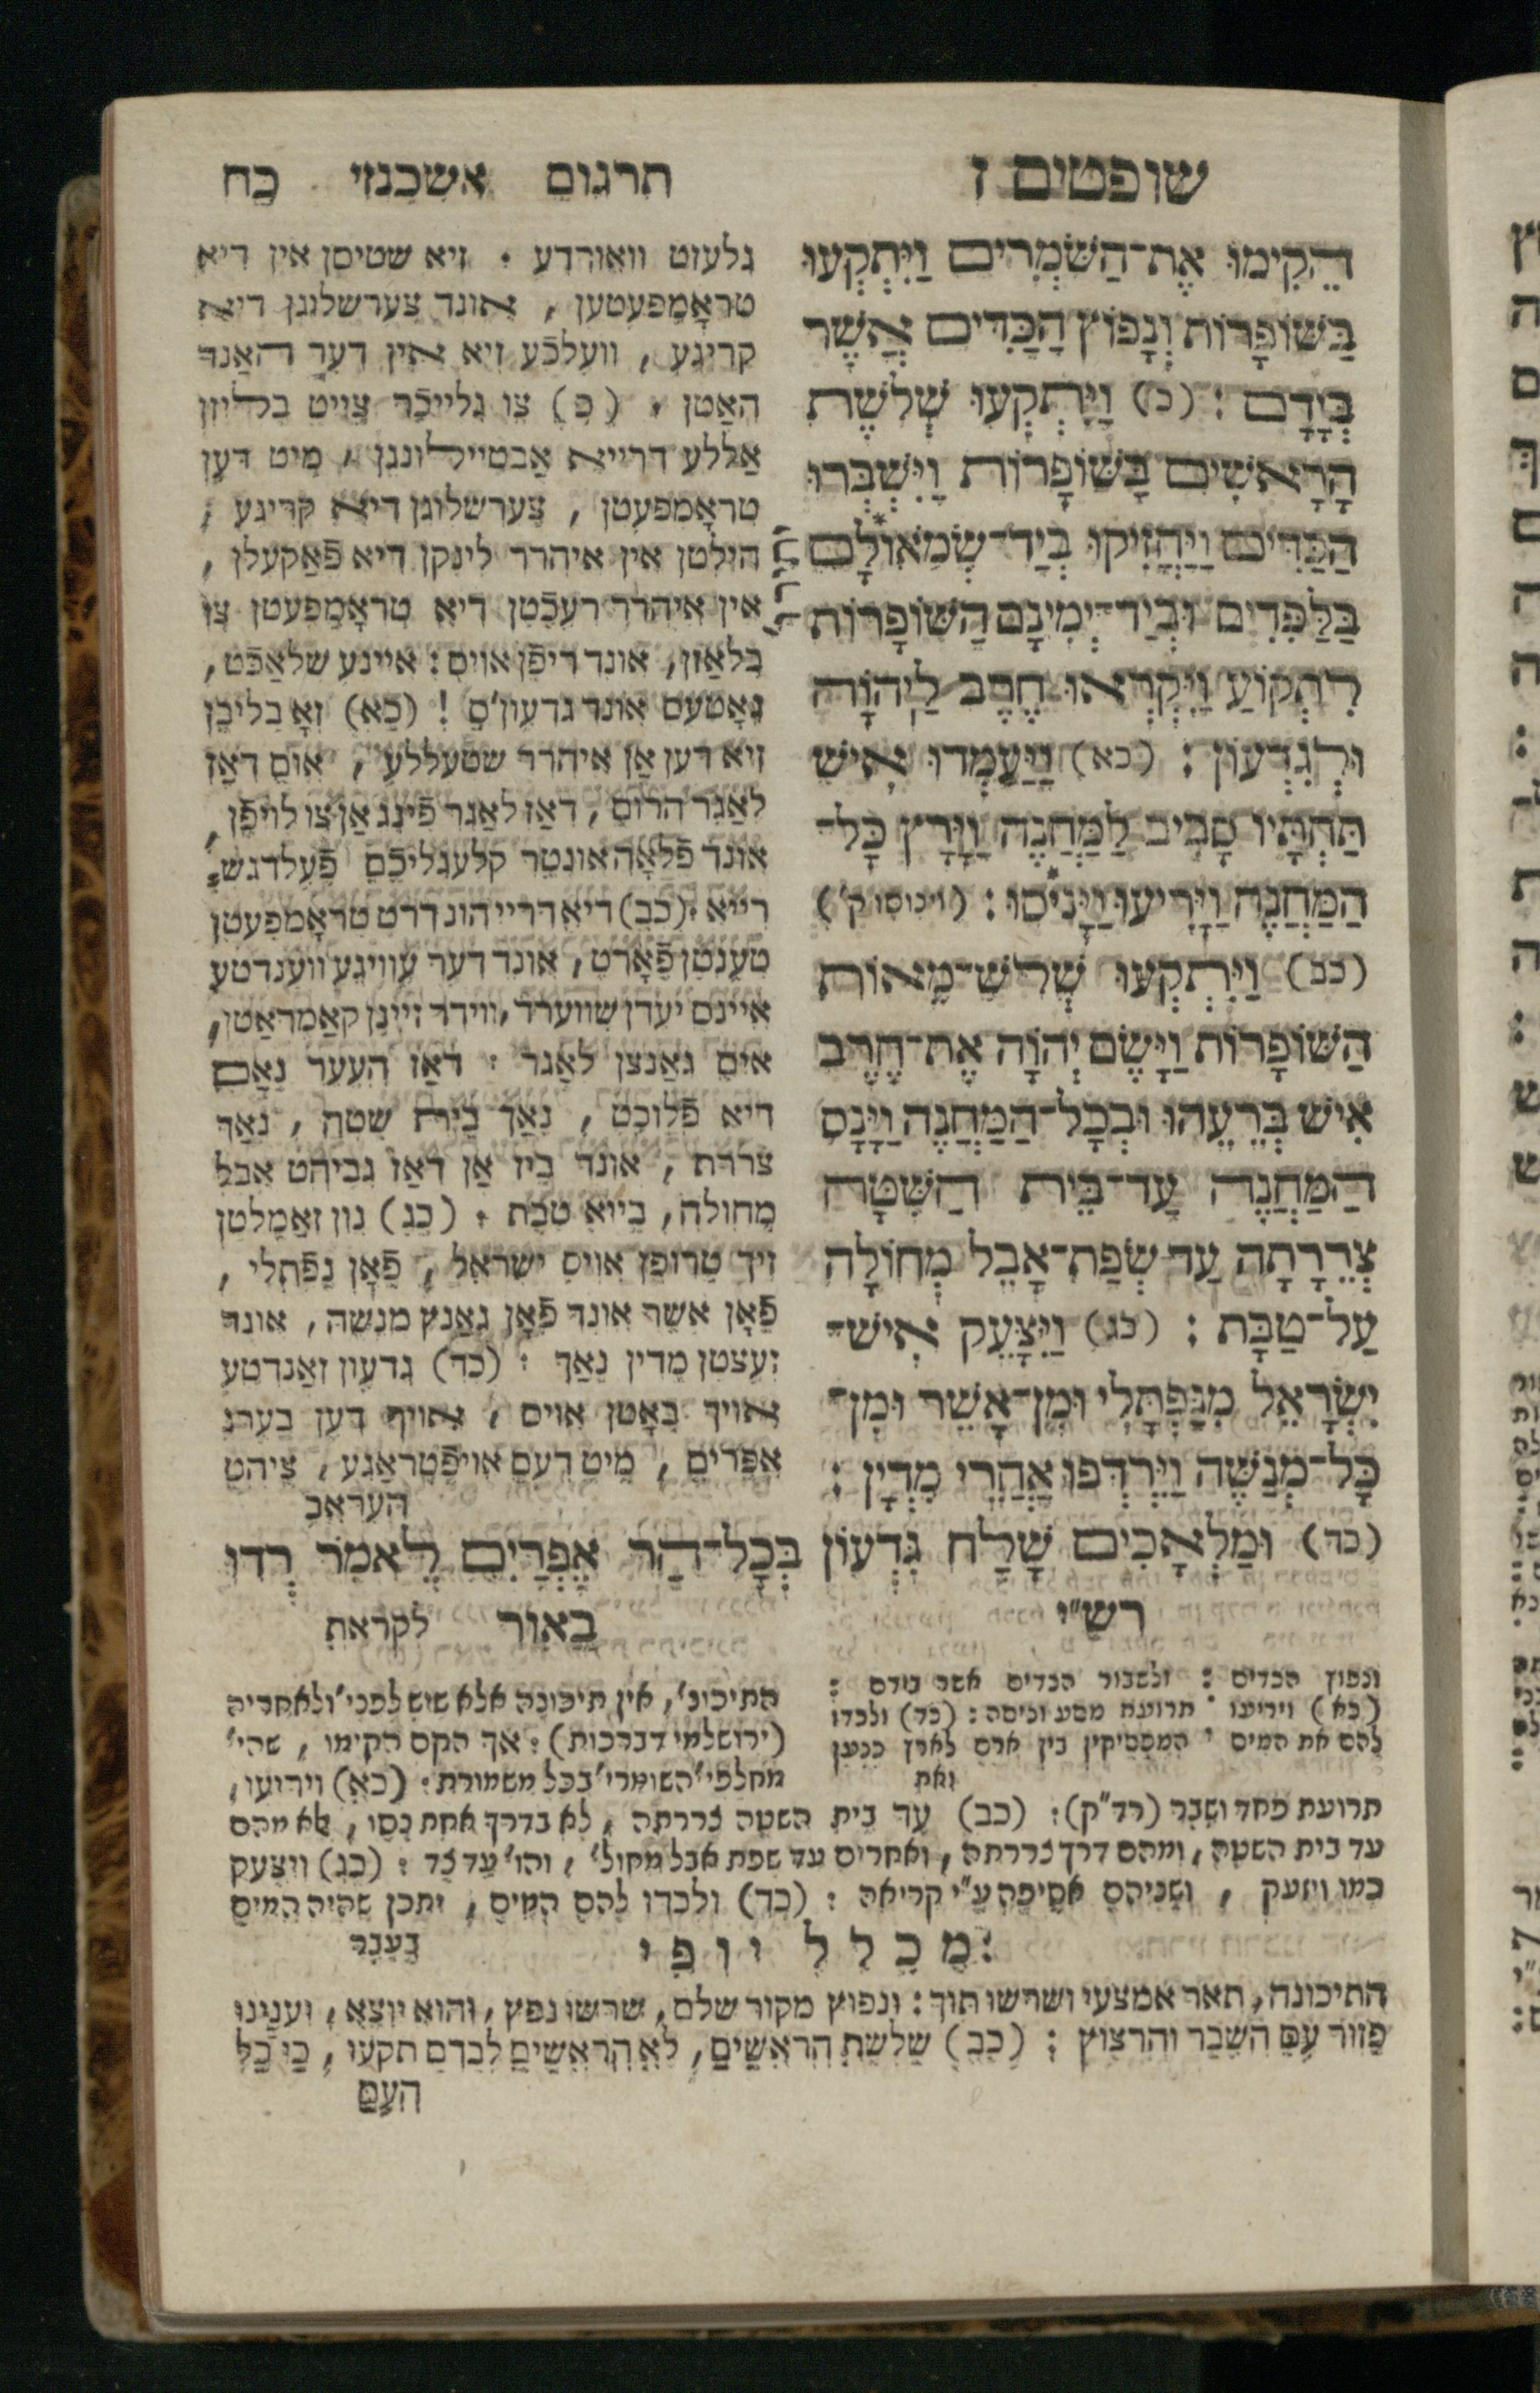 שופטים ז
תרגום אשכנזי כח
הֵקִימוּ אֶת־הַשֹּׁמְרִים וַיִּתְקְעוּ
בַּשּׁוֹפָרוֹת וְנָפוֹץ הַכַּדִּים אֲשֶׁר
בְּיָדָם : (כ) וַיִּתְקְעוּ שְׁלֹשֶׁת
הָרָאשִׁים בַּשּׁוֹפָרוֹת וַיִּשְׁבְּרוּ
הַכַּדִּים וַיַּחֲזִיקוּ בְיַד־שְׂמֹאוֹלָם
בַּלַּפִּדִים וּבְיַד־יְמִינָם הַשּׁוֹפָרוֹת
לִתְקוֹעַ וַיִּקְרְאוּ חֶרֶב לַיהוָֹה
וּלְגִדְעוֹן : (כא) וַיַּעַמְדוּ אִישׁ
תַּחְתָּיו סָבִיב לַמַּחֲנֶה וַיָּרָץ כָּל־
הַמַּחֲנֶה וַיָּרִיעוּ וַיָּנִיסוּ : (וינוסו ק')
(כב) וַיִּתְקְעוּ שְׁלֹשׁ־מֵאוֹת
הַשּׁוֹפָרוֹת וַיָּשֶׂם יְהוָֹה אֶת־חֶרֶב
אִישׁ בְּרֵעֵהוּ וּבְכָל־הַמַּחֲנֶה וַיָּנָס
הַמַּחֲנֶה עַד־בֵּית הַשִּׁטָּה
צְרֵרָתָה עַד שְׂפַת־אָבֵל מְחוֹלָה
עַל־טַבָּת : (כג) וַיִּצָּעֵק אִישׁ־
יִשְׂרָאֵל מִנַּפְתָּלִי וּמִן־אָשֵׁר וּמִן־
כָּל־מְנַשֶּׁה וַיִּרְדְּפוּ אַחֲרֵי מִדְיָן :
גלעזט וואורדע . זיא שטיסן אין דיא
טראָמפעטען , אונד צערשלוגן דיא
קריגע , וועלכֿע זיא אין דער האַנד
האַטן . (כ) צו גלייכֿר צייט בליזן
אַללע דרייא אַבטיילונגן , מיט דען
טראָמפעטן , צערשלוגן דיא קריגע ,
הילטן אין איהרר לינקן דיא פֿאַקעלן ,
אין איהרר רעכֿטן דיא טראָמפעטן צו
בלאַזן, אונד ריפֿן אויס: איינע שלאַכֿט,
גאָטעס אונד גדעון'ס ! (כא) זאָ בליבן
זיא דען אַן איהרר שטעללע , אום דאַז
לאַגר הרום , דאַז לאַגר פֿינג אַן צו לויפֿן ,
אונד פֿלאָה אונטר קלעגליכֿם פֿעלדגש־
רייא . (כב) דיא דרייא הונדרט טראָמפעטן
טענטן פֿאָרט, אונד דער עוויגע ווענדטע
איינס יעדן שווערד, ווידר זיינן קאַמראַטן,
אים גאַנצן לאַגר : דאַז העער נאַם
דיא פֿלוכֿט , נאַך בית שטה , נאַך
צררת , אונד ביז אַן דאַז גביהט אבל
מחולה, בייא טבת . (כג) נון זאַמלטן
זיך טרופן אויס ישראל , פֿאָן נפתלי ,
פֿאָן אשר אונד פֿאָן גאַנץ מנשה , אונד
זעצטן מדין נאַך : (כד) גדעון זאַנדטע
אויך באָטן אויס , אויף דען בערג
אפרים , מיט דעם אויפֿטראַגע , ציהט
העראב
(כד) וּמַלְאָכִים שָׁלַח גִּדְעוֹן בְּכָל־הַר אֶפְרַיִם לֵאמֹר רְדוּ
רש"י
ונפוץ הכדים : ולשבור הכדים אשר בידם :
(כא) ויריעו תרועת מסע וניסה : (כד) ולכדו
להם את המים המפסיקין בין ארם לארץ כנען
ואת
באור לקראת
התיכונ', אין תיכונה אלא שיש לפני' ולאחריה
(ירושלמי דברכות) : אך הקם הקימו , שהי'
מחלפי' השומרי' בכל משמורת : (כא) ויריעו,
תרועת פחד ושבר (רד"ק) : (כב) עד בית השטה צררתה , לא בדרך אחת נסו , אלא מהם
עד בית השטה , ומהם דרך צררתה , ואחרים עד שפת אבל מחול' , והו' עד צד : (כג) ויצעק
כמו ויזעק , ושניהם אסיפה ע"י קריאה : (כד) ולכדו להם המים , יתכן שהיה המים
בעבר
מכלל יופי
התיכונה, תאר אמצעי ושרשו תוך : ונפוץ מקור שלם, שרשו נפץ, והוא יוצא, וענינו
פזור עם השבר והרצוץ : (כב) שלשת הראשים, לא הראשים לבדם תקעו , כי כל
העם